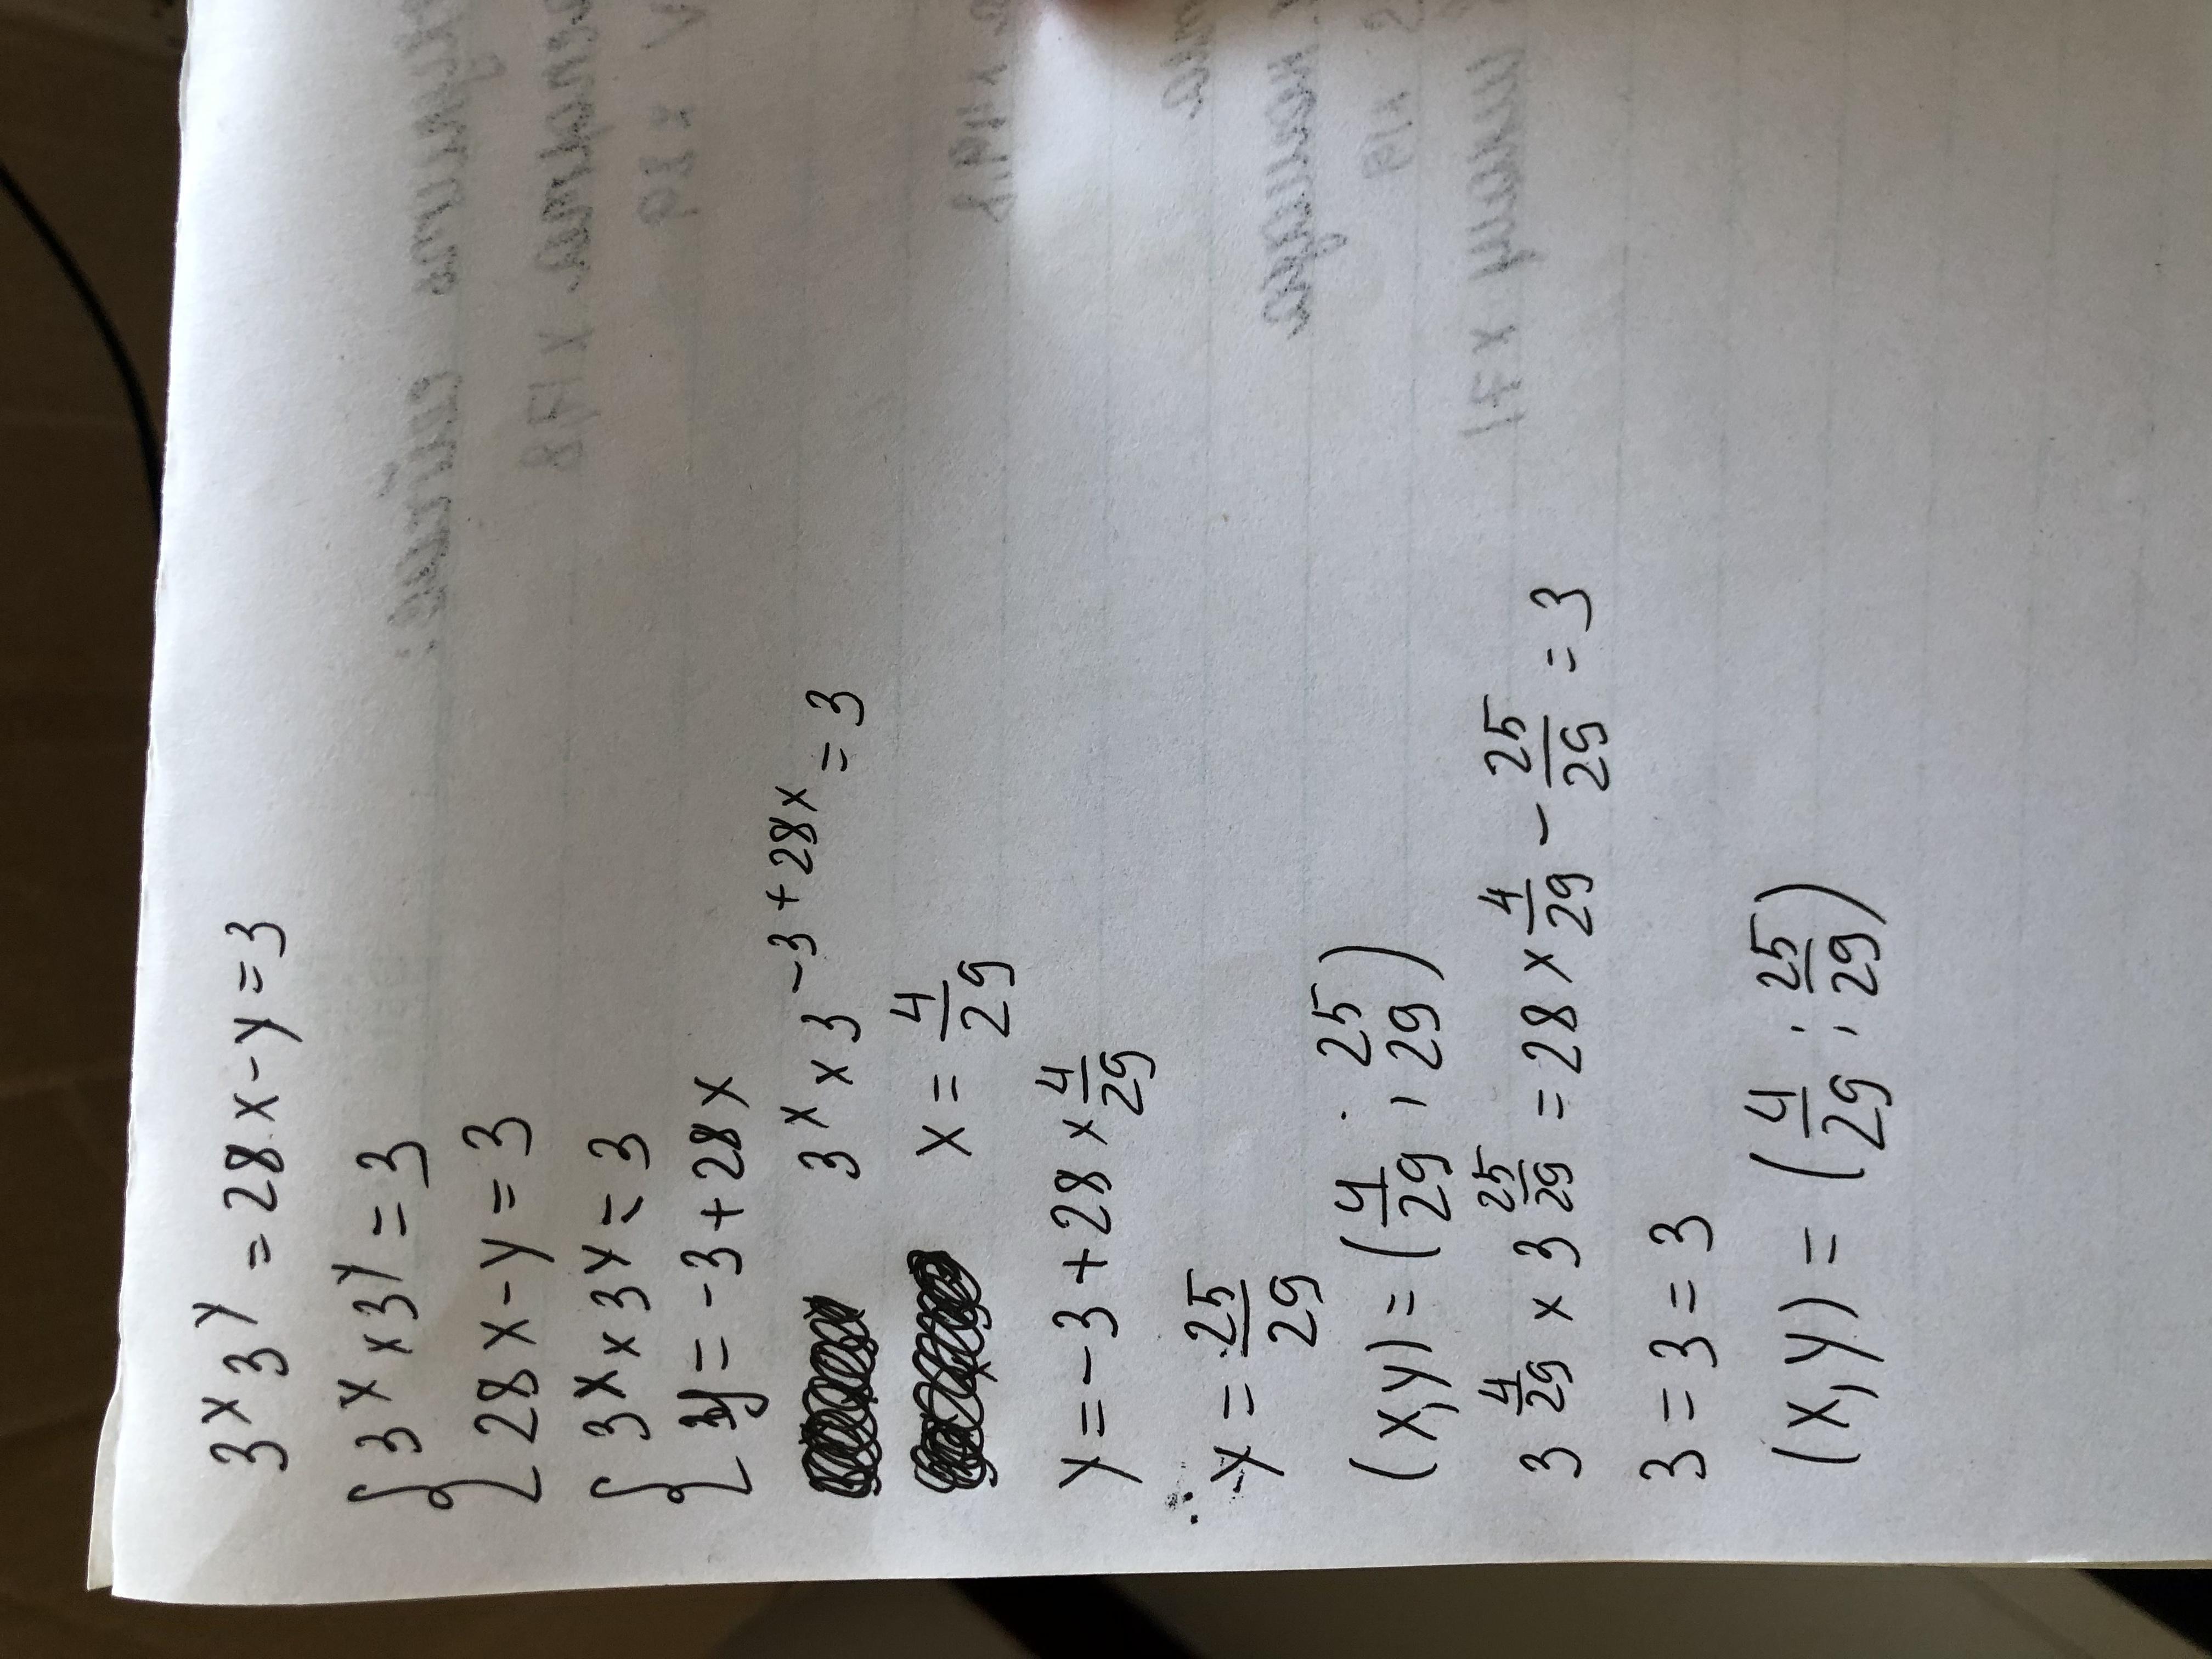 3ˣ 3ʸ = 28x - y = 3
{ 3ˣ x 3ʸ = 3
28x - y = 3
{ 3ˣ x 3ʸ = 3
y = -3 + 28x
3ˣ x 3⁻³⁺²⁸ˣ = 3
x = 4/29
y = -3 + 28 x 4/29
y = 25/29
(x,y) = (4/29 ; 25/29)
3^(4/29) x 3^(25/29) = 28 x 4/29 - 25/29 = 3
3 = 3 = 3
(x,y) = (4/29 ; 25/29)